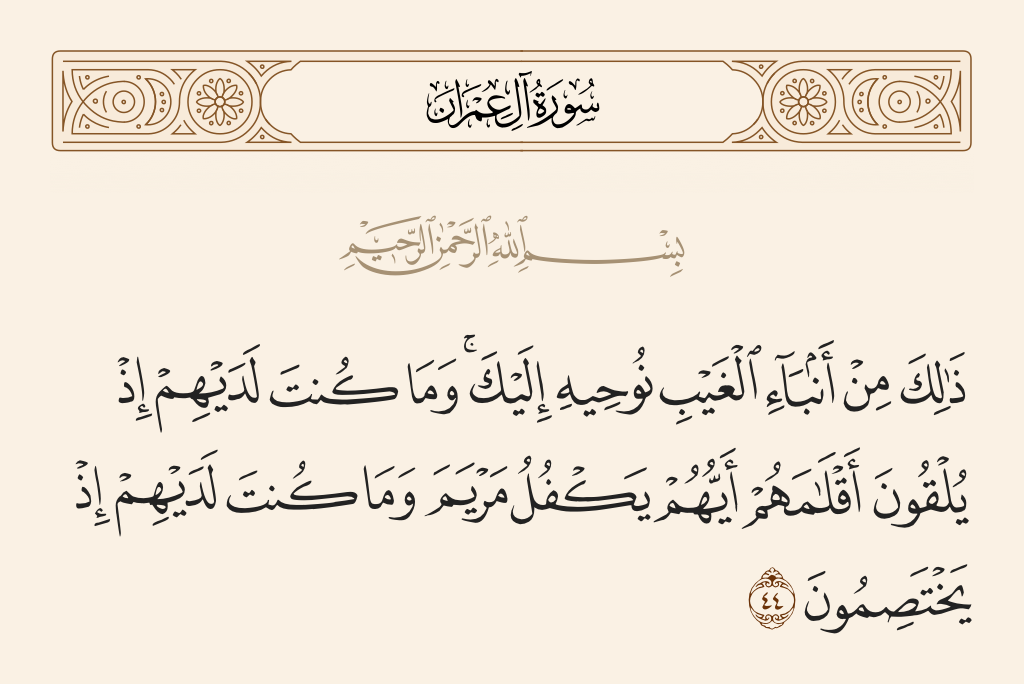 سُورَةُ آلِ عِمْرَانَ
بِسْمِ ٱللَّهِ ٱلرَّحْمَٰنِ ٱلرَّحِيمِ
ذَٰلِكَ مِنْ أَنۢبَآءِ ٱلْغَيْبِ نُوحِيهِ إِلَيْكَ ۚ وَمَا كُنتَ لَدَيْهِمْ إِذْ
يُلْقُونَ أَقْلَٰمَهُمْ أَيُّهُمْ يَكْفُلُ مَرْيَمَ وَمَا كُنتَ لَدَيْهِمْ إِذْ
يَخْتَصِمُونَ ٤٤